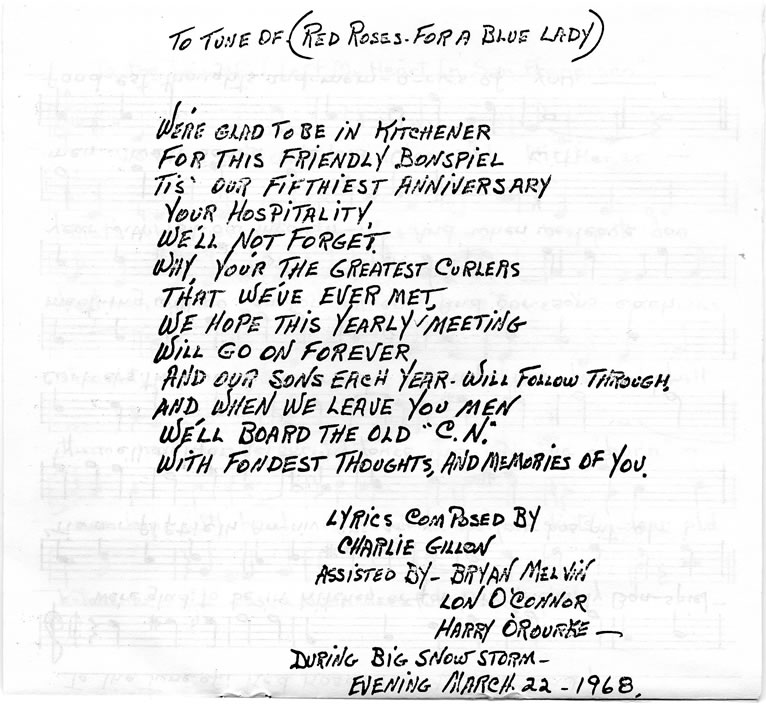 TO TUNE OF (RED ROSES. FOR A BLUE LADY)
WE'RE GLAD TO BE IN KITCHENER
FOR THIS FRIENDLY BONSPIEL
TIS' OUR FIFTHIEST ANNIVERSARY
YOUR HOSPITALITY,
WE'LL NOT FORGET.
WHY, YOU'R THE GREATEST CURLERS
THAT WE'VE EVER MET,
WE HOPE THIS YEARLY MEETING
WILL GO ON FOREVER,
AND OUR SONS EACH YEAR - WILL FOLLOW THROUGH,
AND WHEN WE LEAVE YOU MEN
WE'LL BOARD THE OLD "C.N."
WITH FONDEST THOUGHTS, AND MEMORIES OF YOU.
LYRICS COMPOSED BY
CHARLIE GILLON
ASSISTED BY - BRYAN MELVIN
LON O'CONNOR
HARRY O'ROURKE —
DURING BIG SNOW STORM -
EVENING MARCH 22 - 1968.